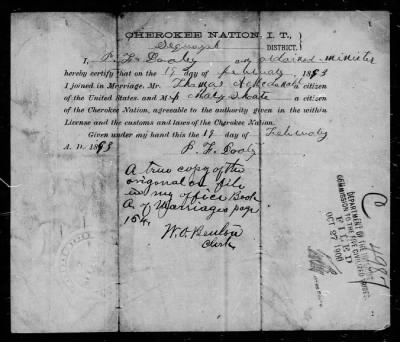 CHEROKEE NATION, I. T.,
Sequoyah DISTRICT.
I, P. F. Dooly an ordained minister
hereby certify that on the 19 day of February, 1893
I joined in Marriage, Mr. Thomas A. McDonald a citizen
of the United States, and M Skate a citizen
of the Cherokee Nation, agreeable to the authority given in the within
License and the customs and laws of the Cherokee Nation.
Given under my hand this the 19 day of February
A. D. 1893
P. F. Dooly
A true copy of the
original on file
in my office Book
A of Marriages page
154.
W. O. Benton
Clerk
C 4987
DEPARTMENT OF THE INTERIOR
COMMISSION TO THE FIVE CIVILIZED TRIBES
FILED
OCT 27 1900